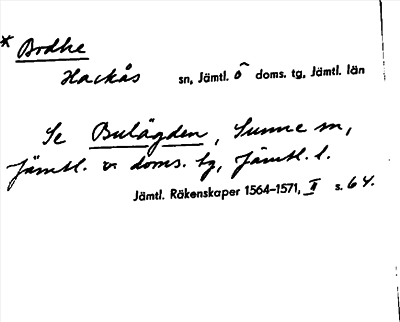 * Bodhe
Hackås sn, Jämtl. ö doms. tg, Jämtl. län
Se Bulägden, Sunne sn,
Jämtl. v doms. tg, Jämtl. l.
Jämtl. Räkenskaper 1564–1571, II s. 64.